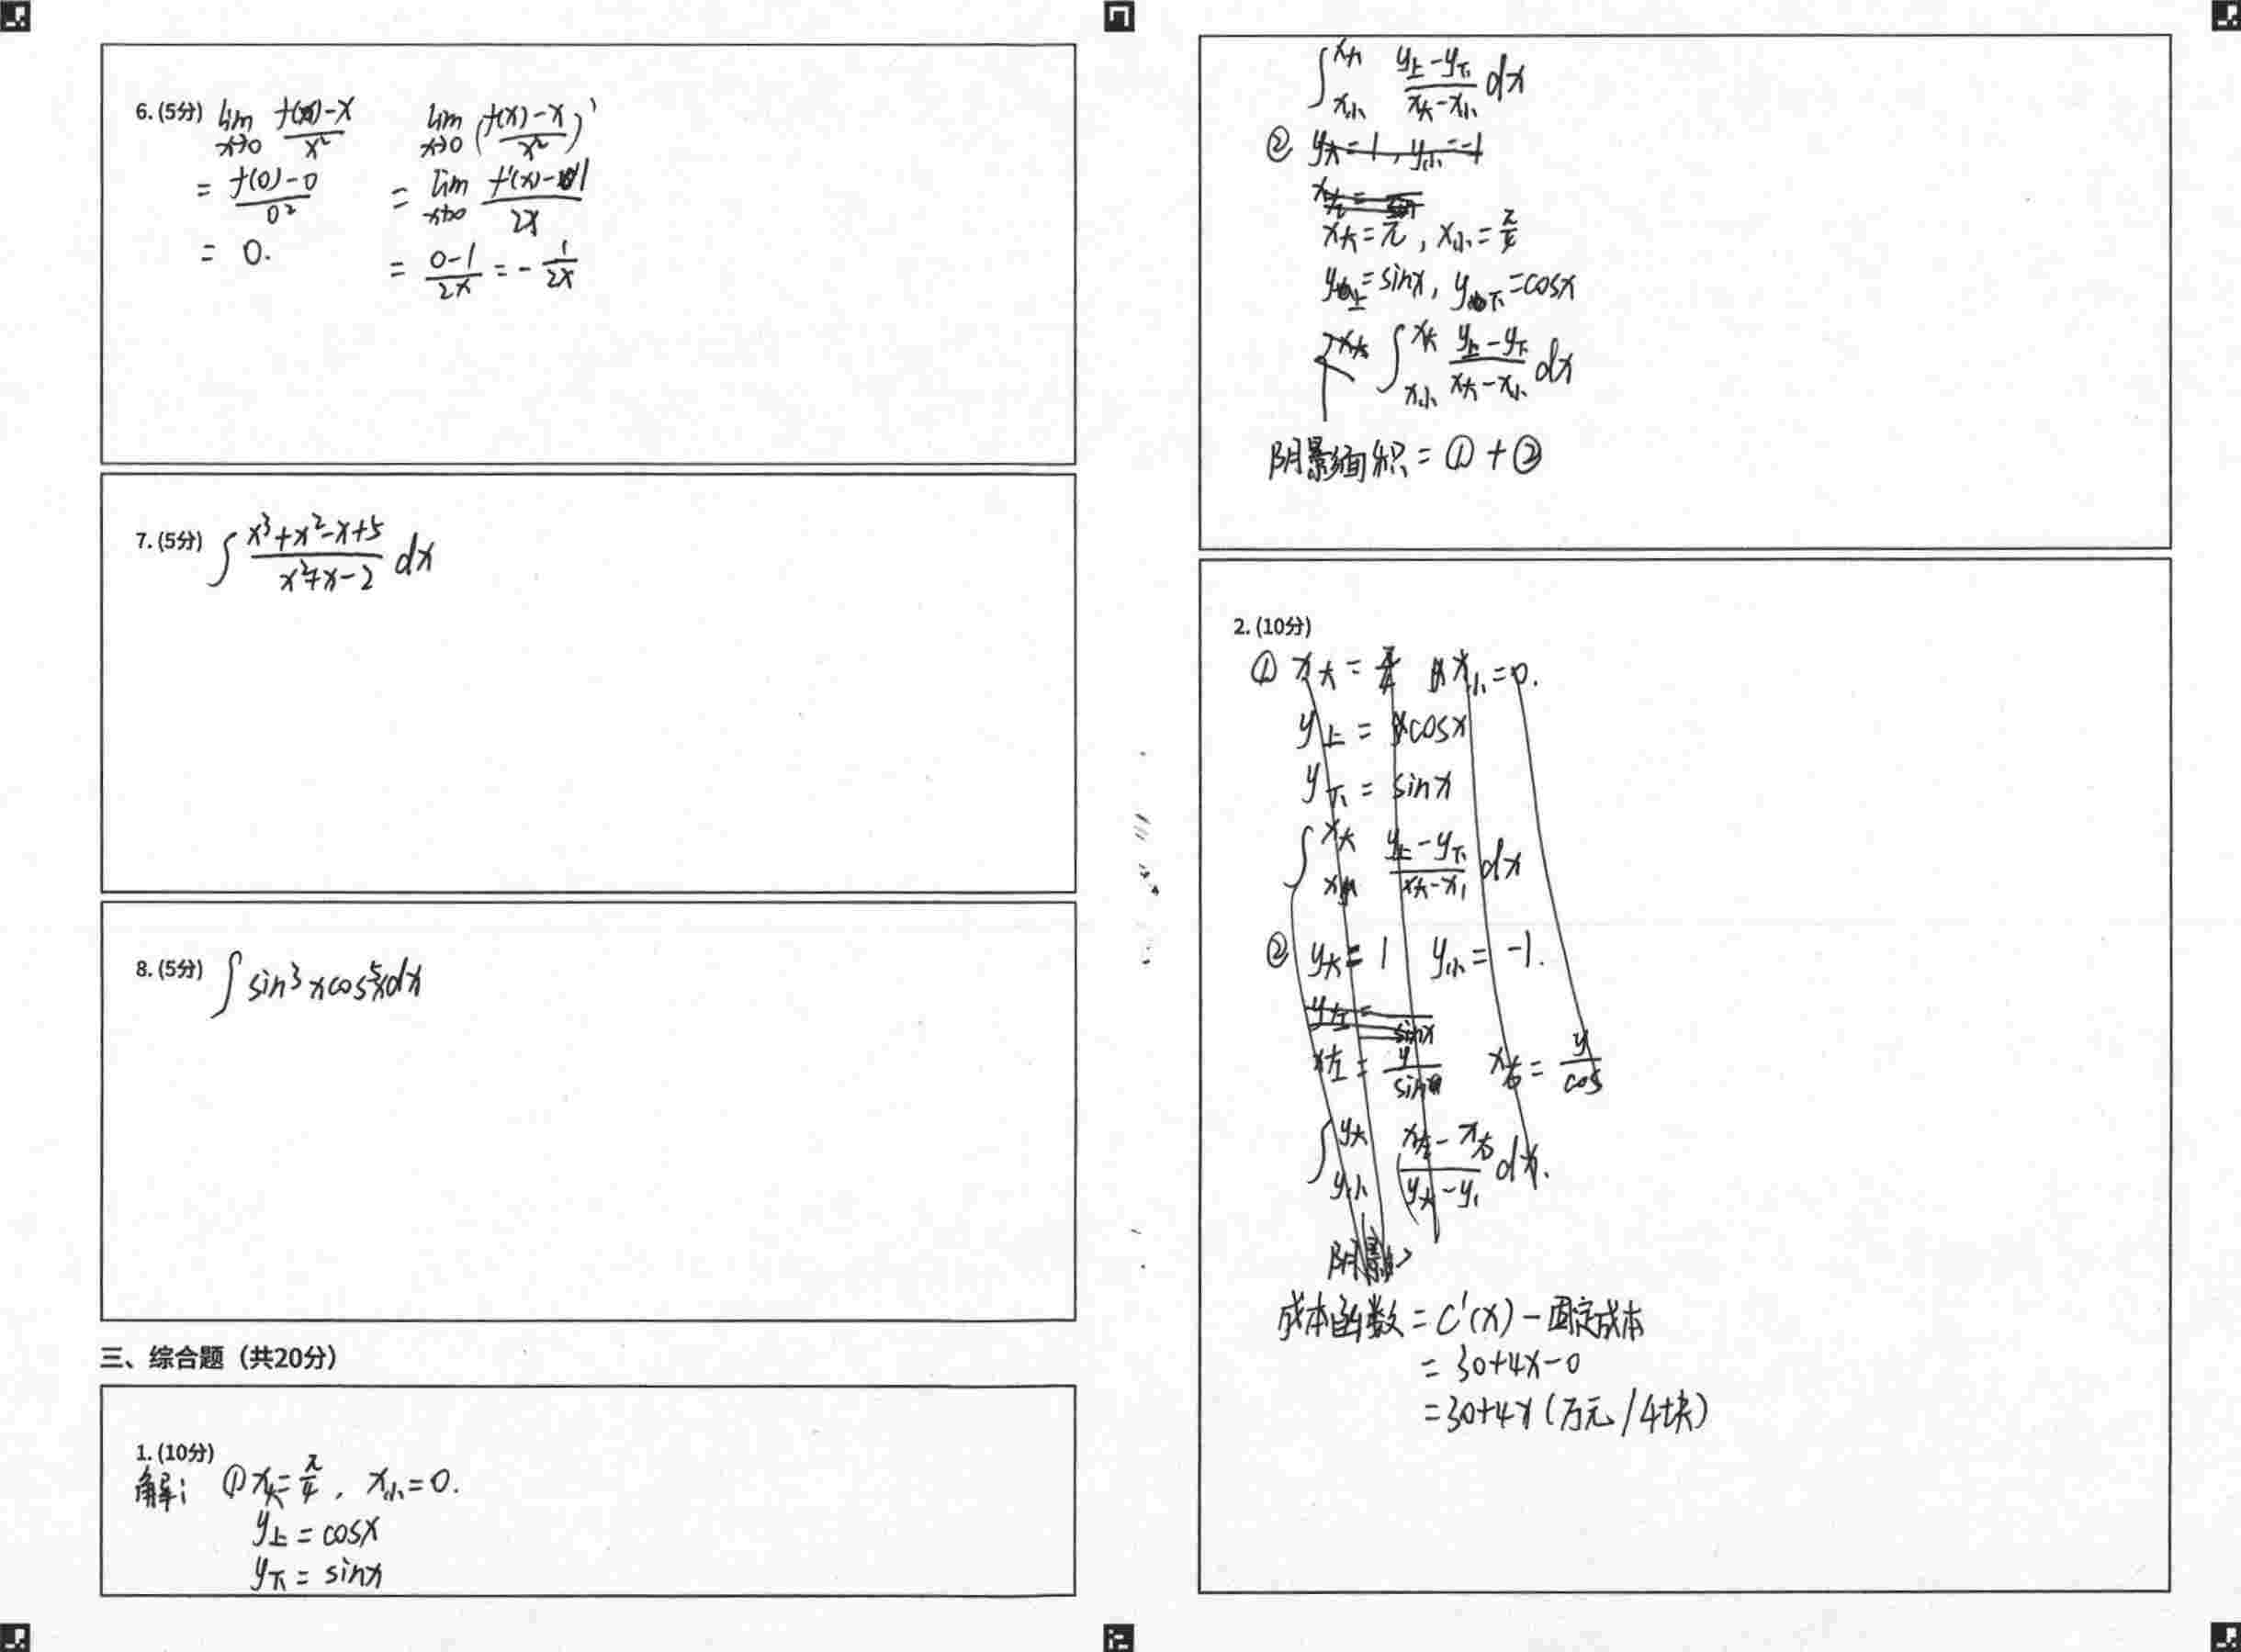 6. (5分) lim x→0 (f(x)-x)/x² lim x→0 ((f(x)-x)/x²)'
= (f(0)-0)/0² = lim x→0 (f'(x)-1)/2x
= 0. = (0-1)/2x = -1/2x
7. (5分) ∫ (x³+x²-x+5)/(x²+x-2) dx
8. (5分) ∫ sin³xcos⁵xdx
三、综合题（共20分）
1. (10分)
解: ① x大=π/4, x小=0.
y上=cosx
y下=sinx
∫ x小 x大 (y上-y下)/(x大-x小) dx
② y大=1, y小=-1
x大=π, x小=π/4
y上=sinx, y下=cosx
∫ x小 x大 (y上-y下)/(x大-x小) dx
阴影面积=①+②
2. (10分)
① x大=π/4 x小=0.
y上=cosx
y下=sinx
∫ x小 x大 (y上-y下)/(x大-x小) dx
② y大=1 y小=-1.
y左=
x左=y/sin x右=y/cos
∫ y小 y大 (x左-x右)/(y大-y小) dx.
阴影
成本函数=C'(x)-固定成本
=30+4x-0
=30+4x(万元/4块)